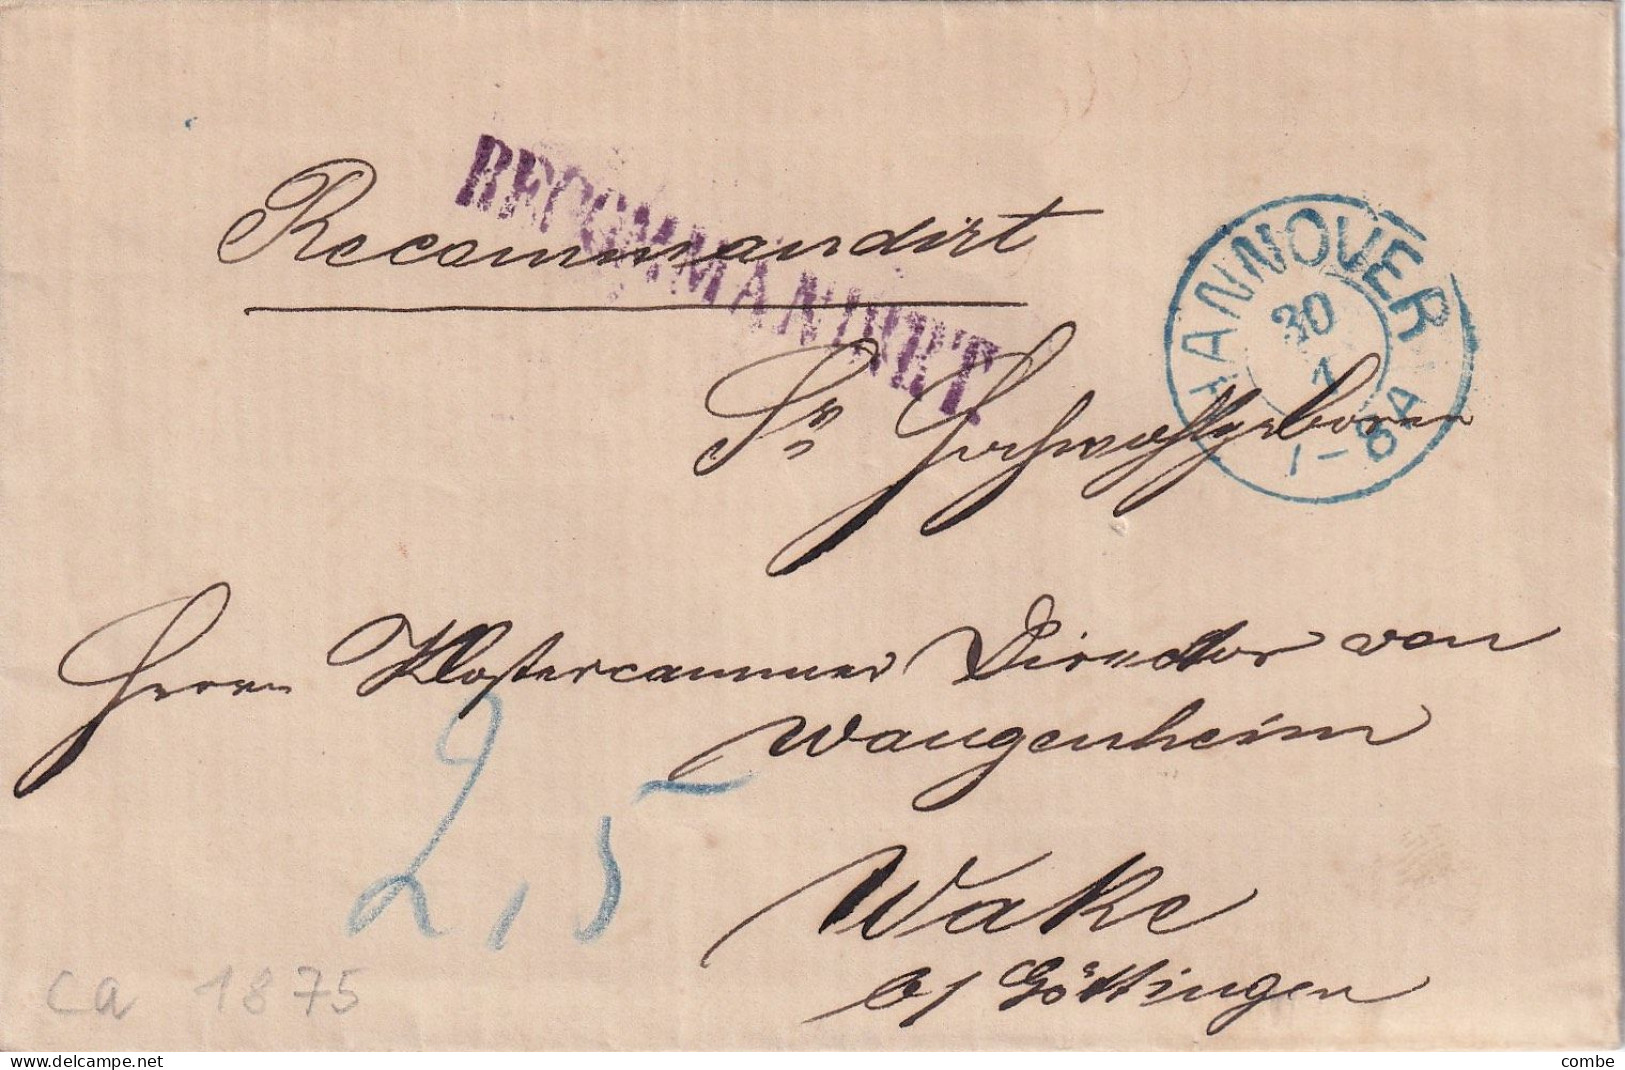 RECOMMANDIRT
Recommandirt
HANNOVER
30
1
7-8A
Sr Hochwohlgeboren
Herrn Klostercammer Director von
Wangenheim
2,5
Wake
b/ Göttingen
ca 1875
www.delcampe.net
combe